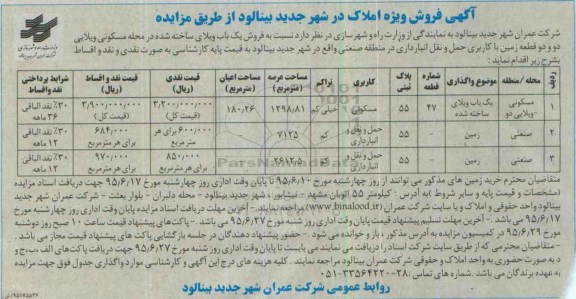 آگهی فروش ویژه املاک در شهر جدید بینالود از طریق مزایده
شرکت عمران شهر جدید بینالود به نمایندگی از وزارت راه و شهرسازی در نظر دارد نسبت به فروش یک باب ویلای ساخته شده در محله مسکونی ویلایی
دو و دو قطعه زمین با کاربری حمل و نقل انبارداری در منطقه صنعتی واقع در شهر جدید بینالود به قیمت پایه کارشناسی به صورت نقدی و نقد و اقساط
بشرح زیر اقدام نماید :
ردیف محله/منطقه موضوع واگذاری شماره قطعه پلاک ثبتی کاربری تراکم مساحت عرصه (مترمربع) مساحت اعیان (مترمربع) قیمت نقدی (ریال) قیمت نقد و اقساط (ریال) شرایط پرداختی نقد و اقساط
۱ مسکونی -ویلایی دو یک باب ویلای ساخته شده ۴۷ ۵۵ مسکونی خیلی کم ۱۲۹۸/۸۱ ۱۸۰/۲۶ ۳/۲۰۰/۰۰۰/۰۰۰ (قیمت کل) ۳/۹۰۰/۰۰۰/۰۰۰ (قیمت کل) ۳۰٪ نقد الباقی ۳۶ ماهه
۲ صنعتی زمین - ۵۵ حمل و نقل و انبارداری کم ۷۱۲۵ - ۶۰۰/۰۰۰ برای هر متر مربع ۶۸۴/۰۰۰ برای هر متر مربع ۳۰٪ نقد الباقی ۱۲ ماهه
۳ صنعتی زمین - ۵۵ حمل و نقل و انبارداری کم ۲۶۱۲/۵ - ۸۵۰/۰۰۰ برای هر مترمربع ۹۷۰/۰۰۰ برای هر متر مربع ۳۰٪ نقد الباقی ۱۲ ماهه
متقاضیان محترم خرید زمین های مذکور می توانند از روز چهارشنبه مورخ ۹۵/۶/۱۰ تا پایان وقت اداری روز چهارشنبه مورخ ۹۵/۶/۱۷ جهت دریافت اسناد مزایده
(مشخصات و قیمت پایه و سایر شروط) به آدرس : کیلومتر ۵۵ اتوبان مشهد - نیشابور، شهر جدید بینالود - محله دلبران - بلوار بعثت - شرکت عمران شهر جدید
بینالود واحد حقوقی و املاک و یا سایت شرکت عمران (www.binalood.ir) مراجعه نمایند. - آخرین مهلت دریافت اسناد مزایده پایان وقت اداری روز چهارشنبه مورخ
۹۵/۶/۱۷ می باشد. - آخرین مهلت تسلیم پیشنهاد قیمت پایان وقت اداری روز شنبه مورخ ۹۵/۶/۲۷ می باشد - پاکت‌های پیشنهاد قیمت ساعت ۱۰ صبح روز دوشنبه
مورخ ۹۵/۶/۲۹ در کمیسیون مزایده به آدرس مذکور ، باز و خوانده می شود. - حضور پیشنهاد دهندگان در جلسه بازگشایی پاکت های پیشنهاد قیمت مجاز می باشد .
- متقاضیان محترمی که از طریق سایت شرکت اسناد را دریافت می نمایند می بایست تا پایان وقت اداری روز شنبه مورخ ۹۵/۶/۲۷ جهت دریافت پاکت‌های الف-ب-ج و
د به صورت حضوری به واحد املاک و حقوقی شرکت عمران بینالود مراجعه نمایند. - کلیه هزینه های درج این آگهی و کارشناسی موارد واگذاری جدول فوق جهت مزایده
به عهده برندگان می باشد. شماره های تماس: ۲۸-۳۳۵۶۴۲۲۰-۰۵۱
روابط عمومی شرکت عمران شهر جدید بینالود